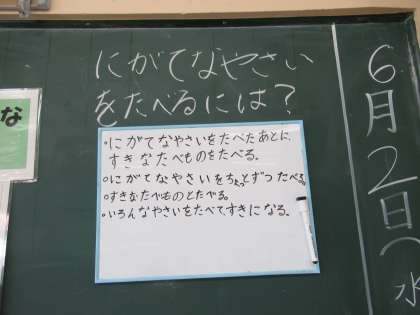 にがてなやさい
をたべるには？
・にがてなやさいをたべたあとに、
すきなたべものをたべる。
・にがてなやさいをちょっとずつたべる。
・すきなたべものとたべる。
・いろんなやさいをたべてすきになる。
6月2日(水
な